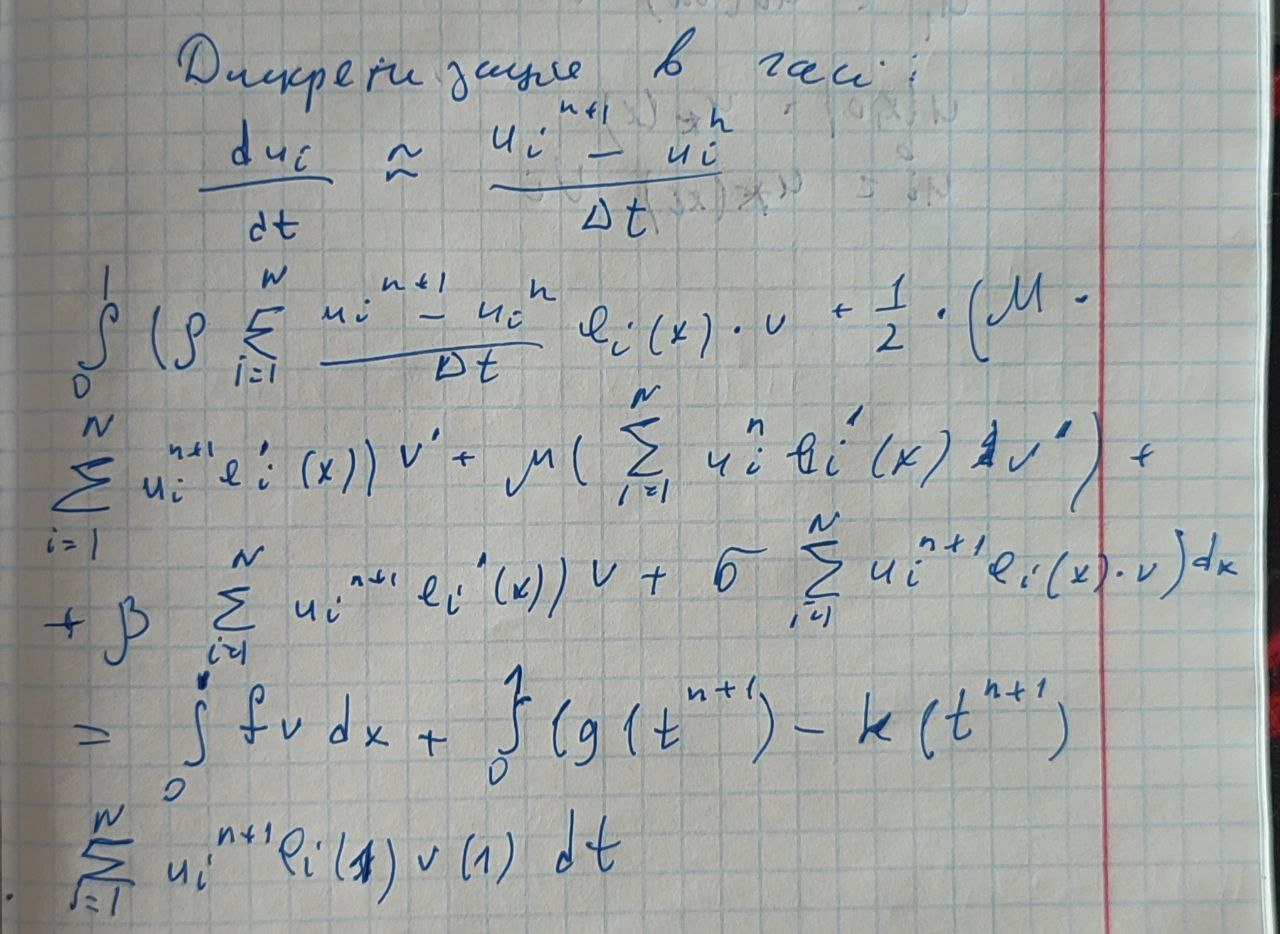 Дискретизація в часі:
du_i / dt ≈ (u_i^{n+1} - u_i^n) / Δt
∫_0^1 (ρ Σ_{i=1}^N (u_i^{n+1} - u_i^n) / Δt e_i(x) · v + 1/2 · (μ ·
Σ_{i=1}^N u_i^{n+1} e_i'(x)) v' + μ( Σ_{i=1}^N u_i^n e_i'(x) v') +
+ β Σ_{i=1}^N u_i^{n+1} e_i'(x)) v + σ Σ_{i=1}^N u_i^{n+1} e_i(x) · v) dx
= ∫_0 f v dx + ∫_0^1 (g(t^{n+1}) - k(t^{n+1})
Σ_{i=1}^N u_i^{n+1} e_i(1) v(1) dt